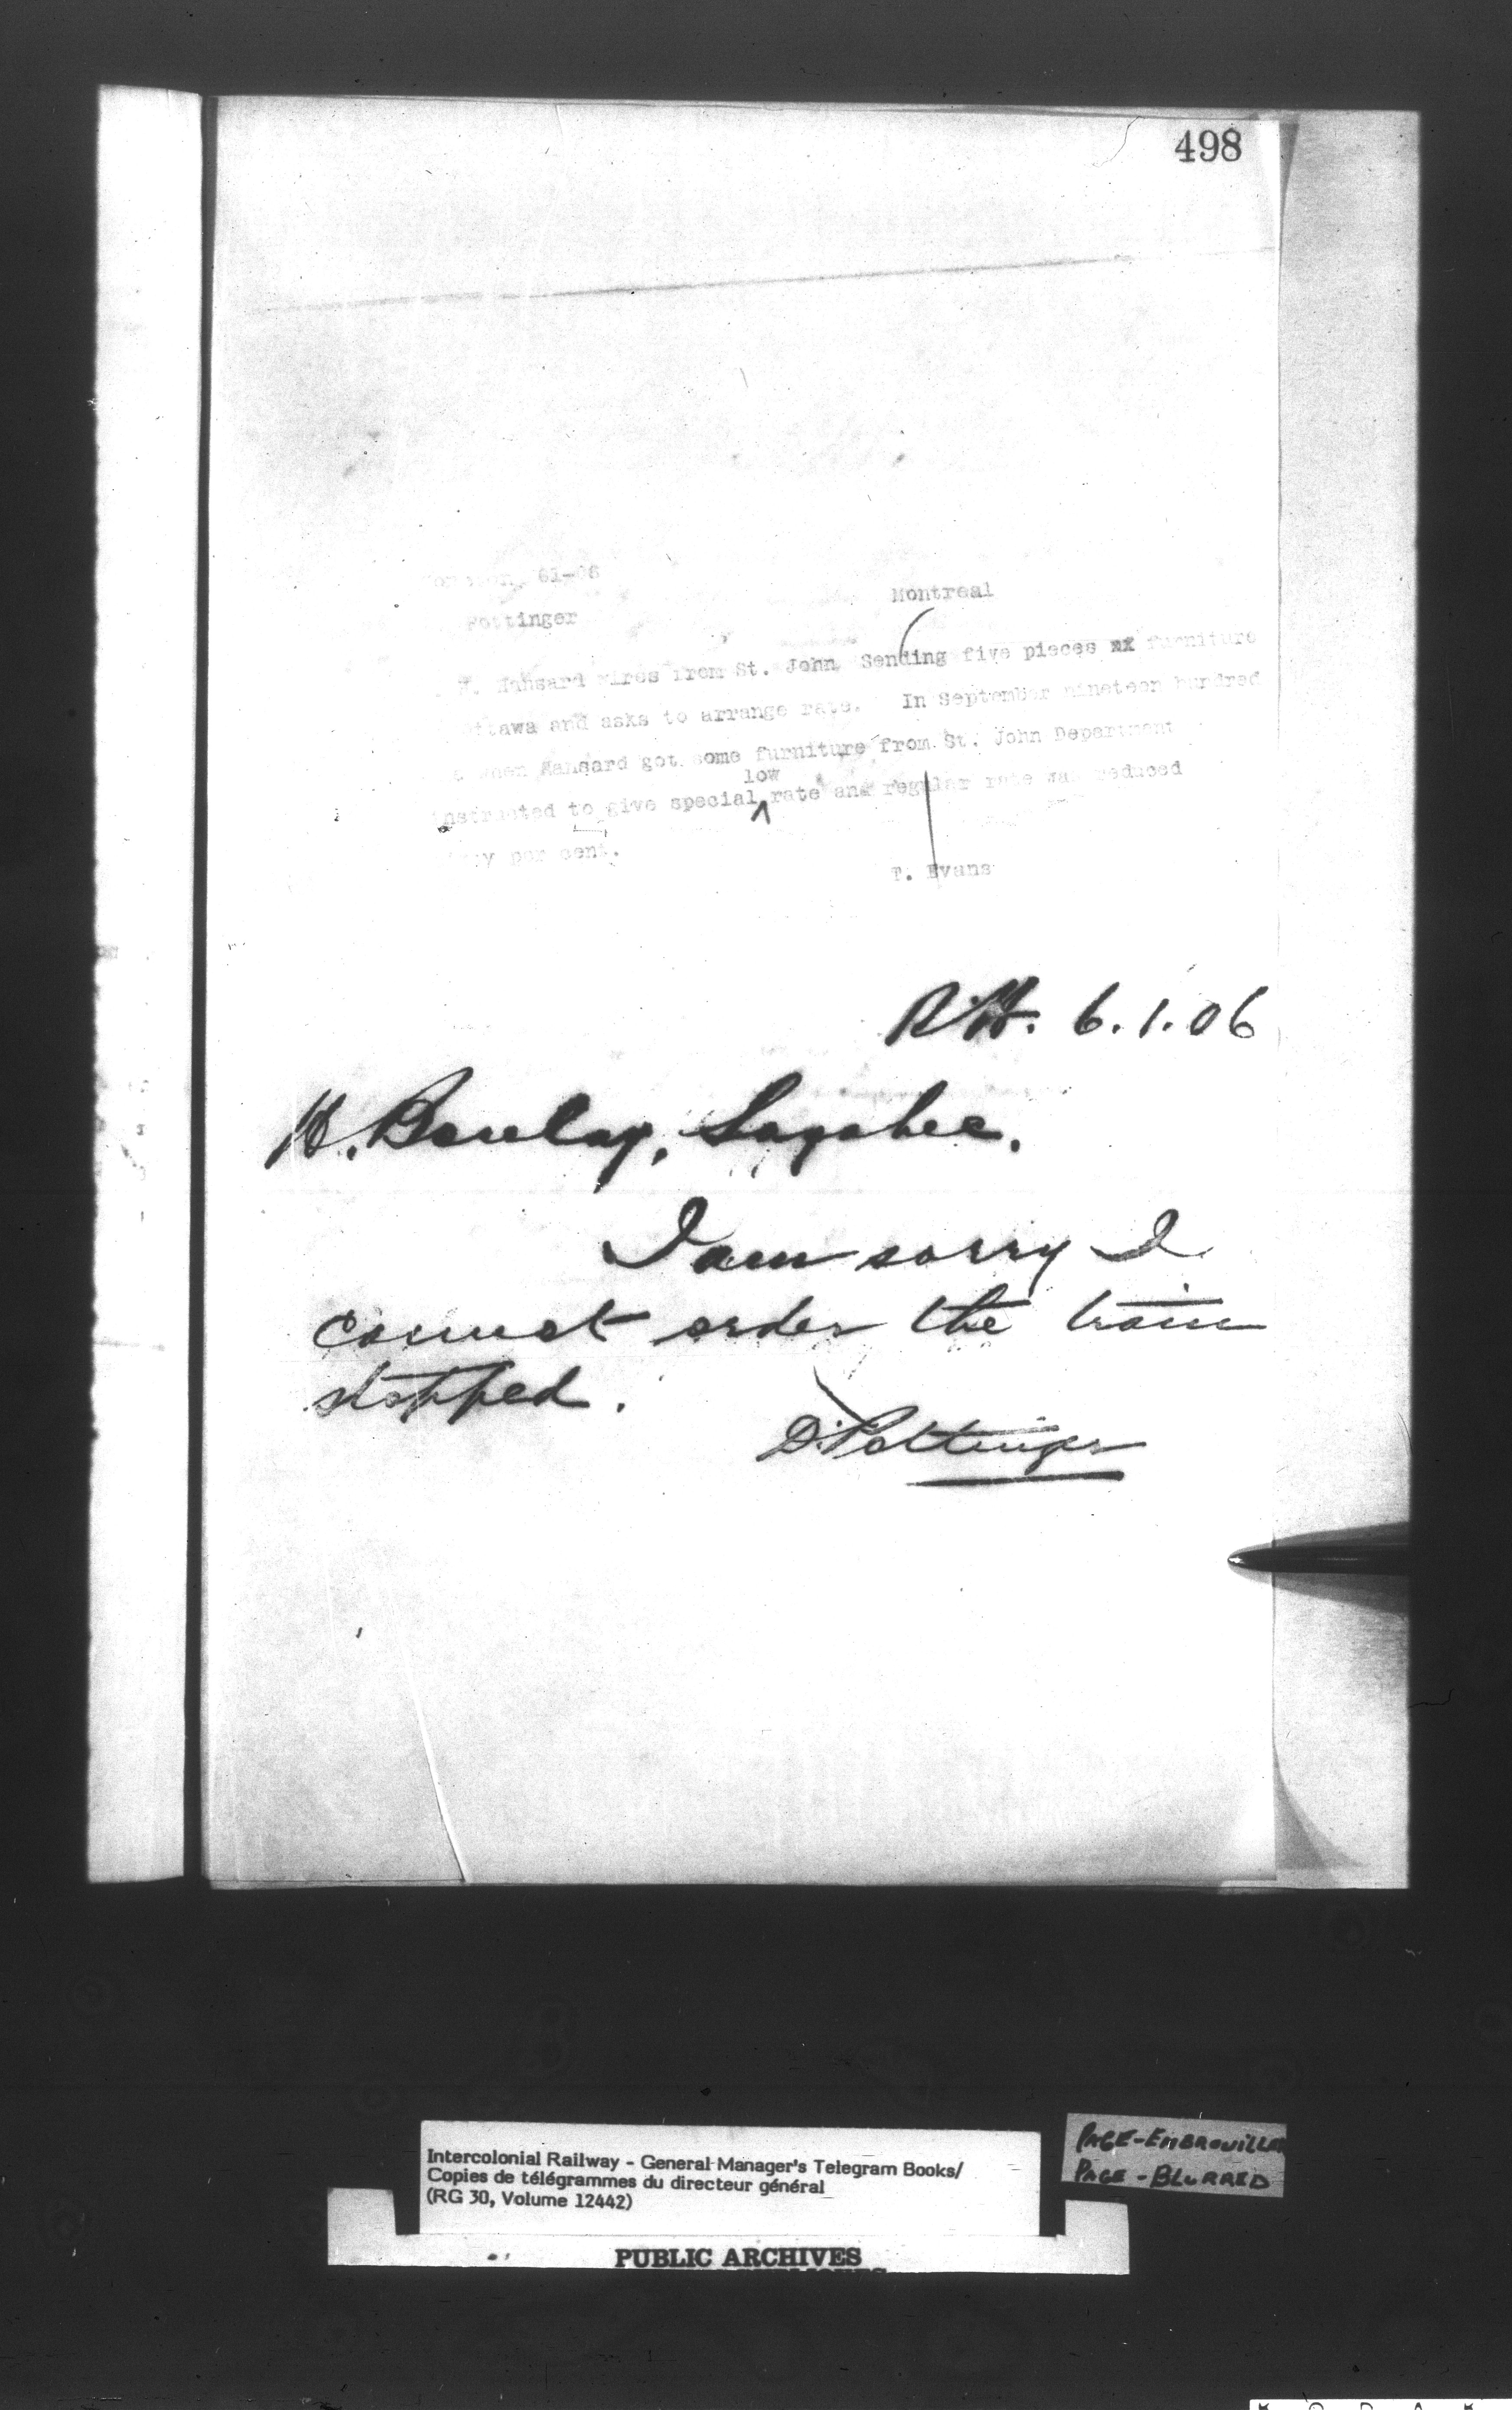 498
61-06
Montreal
Pottinger
Hansard wires from St. John Sending five pieces furniture
Ottawa and asks to arrange rate. In September nineteen hundred
when Hansard got some furniture from St. John Department
low
instructed to give special rate and regular rate was reduced
per cent.
T. Evans
6.1.06
H. Barclay, Sayabec.
I am sorry I
cannot order the train
stopped.
D. Pottinger
Intercolonial Railway - General Manager's Telegram Books/
Copies de télégrammes du directeur général
(RG 30, Volume 12442)
PAGE-EMBROUILLEE
PAGE-BLURRED
PUBLIC ARCHIVES